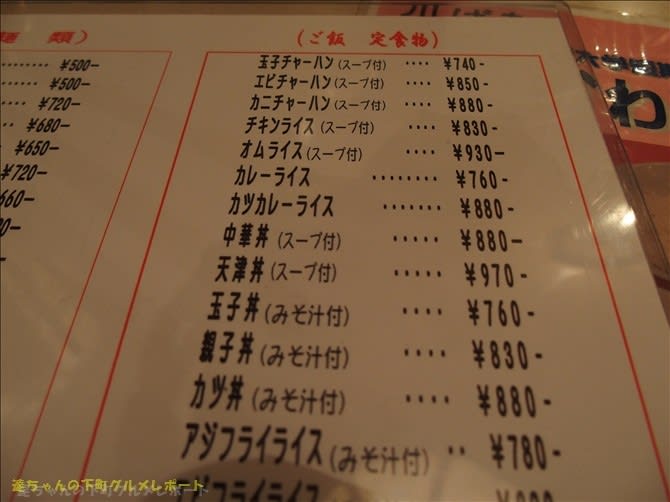 麺類)
¥500-
¥500-
¥720-
¥680-
¥650-
¥720-
(ご飯 定食物)
玉子チャーハン(スープ付) ‥‥ ¥740-
エビチャーハン(スープ付) ‥‥ ¥850-
カニチャーハン(スープ付) ‥‥ ¥880-
チキンライス(スープ付) ‥‥ ¥830-
オムライス(スープ付) ‥‥ ¥930-
カレーライス ‥‥‥‥ ¥760-
カツカレーライス ‥‥‥ ¥880-
中華丼(スープ付) ‥‥‥ ¥880-
天津丼(スープ付) ‥‥‥ ¥970-
玉子丼(みそ汁付) ‥‥ ¥760-
親子丼(みそ汁付) ‥‥ ¥830-
カツ丼(みそ汁付) ‥‥ ¥880-
アジフライライス(みそ汁付) ‥ ¥780-
フライライス
わ
達ちゃんの下町グルメレポート